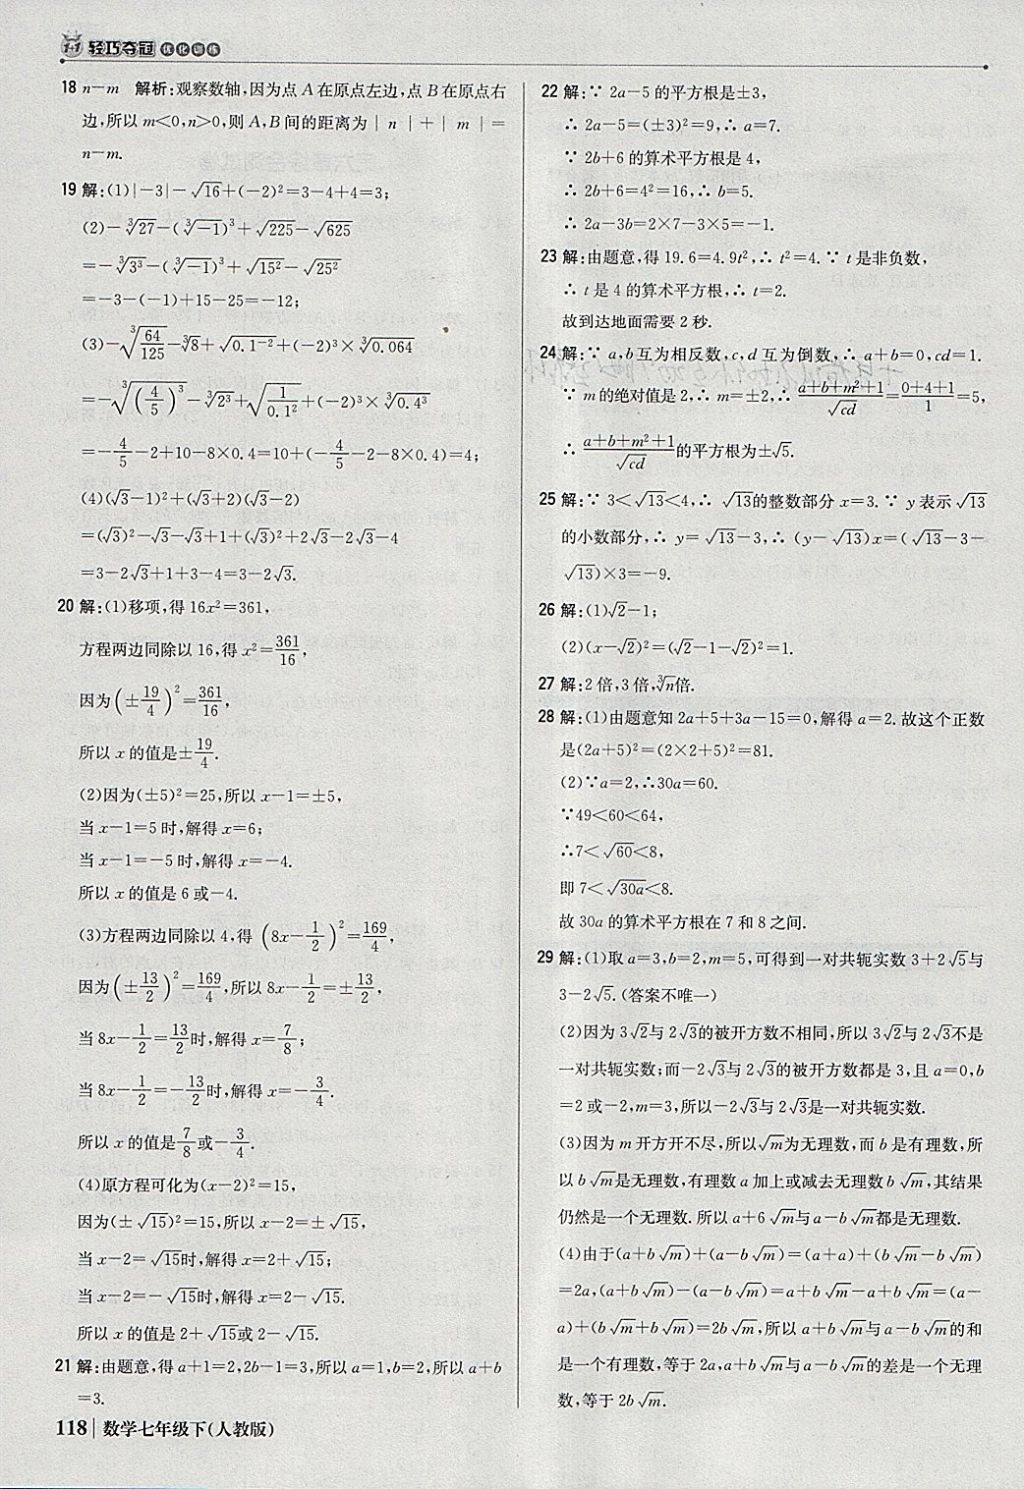 1+1 轻巧夺冠 优化训练
18 n－m　解析:观察数轴,因为点 A 在原点左边,点 B 在原点右
边,所以 m＜0,n＞0,则 A,B 间的距离为｜n｜＋｜m｜＝
n－m.
19 解:(1)|－3|－√16＋(－2)²＝3－4＋4＝3;
(2)－∛27－(∛－1)³＋√225－√625
＝－∛3³－(∛－1)³＋√15²－√25²
＝－3－(－1)＋15－25＝－12;
(3)－∛(64/125)－∛8＋√(0.1⁻²)＋(－2)³×∛0.064
＝－∛((4/5)³)－∛2³＋√(1/0.1²)＋(－2)³×∛0.4³
＝－4/5－2＋10－8×0.4＝10＋(－4/5－2－8×0.4)＝4;
(4)(√3－1)²＋(√3＋2)(√3－2)
＝(√3)²－√3－√3＋1＋(√3)²＋2√3－2√3－4
＝3－2√3＋1＋3－4＝3－2√3.
20 解:(1)移项,得 16x²＝361,
方程两边同除以 16,得 x²＝361/16,
因为(±19/4)²＝361/16,
所以 x 的值是±19/4.
(2)因为(±5)²＝25,所以 x－1＝±5,
当 x－1＝5 时,解得 x＝6;
当 x－1＝－5 时,解得 x＝－4.
所以 x 的值是 6 或－4.
(3)方程两边同除以 4,得 (8x－1/2)²＝169/4,
因为(±13/2)²＝169/4,所以 8x－1/2＝±13/2,
当 8x－1/2＝13/2时,解得 x＝7/8;
当 8x－1/2＝－13/2时,解得 x＝－3/4.
所以 x 的值是7/8或－3/4.
(4)原方程可化为(x－2)²＝15,
因为(±√15)²＝15,所以 x－2＝±√15,
当 x－2＝√15时,解得 x＝2＋√15;
当 x－2＝－√15时,解得 x＝2－√15.
所以 x 的值是 2＋√15或 2－√15.
21 解:由题意,得 a＋1＝2,2b－1＝3,所以 a＝1,b＝2,所以 a＋b
＝3.
22 解:∵ 2a－5 的平方根是±3,
∴ 2a－5＝(±3)²＝9,∴ a＝7.
∵ 2b＋6 的算术平方根是 4,
∴ 2b＋6＝4²＝16,∴ b＝5.
∴ 2a－3b＝2×7－3×5＝－1.
23 解:由题意,得 19.6＝4.9t²,∴ t²＝4.∵ t 是非负数,
∴ t 是 4 的算术平方根,∴ t＝2.
故到达地面需要 2 秒.
24 解:∵ a,b 互为相反数,c,d 互为倒数,∴ a＋b＝0,cd＝1.
∵ m 的绝对值是 2,∴ m＝±2,∴ (a＋b＋m²＋1)/√cd＝(0＋4＋1)/1＝5,
∴ (a＋b＋m²＋1)/√cd的平方根为±√5.
25 解:∵ 3＜√13＜4,∴ √13的整数部分 x＝3.∵ y 表示√13
的小数部分,∴ y＝√13－3,∴ (y－√13)x＝(√13－3－
√13)×3＝－9.
26 解:(1)√2－1;
(2)(x－√2)²＝(√2－1－√2)²＝1.
27 解:2 倍,3 倍,∛n倍.
28 解:(1)由题意知 2a＋5＋3a－15＝0,解得 a＝2.故这个正数
是(2a＋5)²＝(2×2＋5)²＝81.
(2)∵a＝2,∴30a＝60.
∵49＜60＜64,
∴7＜√60＜8,
即 7＜√30a＜8.
故 30a 的算术平方根在 7 和 8 之间.
29 解:(1)取 a＝3,b＝2,m＝5,可得到一对共轭实数 3＋2√5与
3－2√5.(答案不唯一)
(2)因为 3√2与 2√3的被开方数不相同,所以 3√2与 2√3不是
一对共轭实数;而－2√3与 2√3的被开方数都是 3,且 a＝0,b
＝2 或－2,m＝3,所以－2√3与 2√3是一对共轭实数.
(3)因为 m 开方开不尽,所以√m为无理数,而 b 是有理数,所
以 b√m是无理数,有理数 a 加上或减去无理数 b√m,其结果
仍然是一个无理数.所以 a＋6√m与 a－b√m都是无理数.
(4)由于(a＋b√m)＋(a－b√m)＝(a＋a)＋(b√m－b√m)
＝2a,(a＋b√m)－(a－b√m)＝a＋b√m－a＋b√m＝(a－
a)＋(b√m＋b√m)＝2b√m,所以 a＋b√m与 a－b√m的和
是一个有理数,等于 2a,a＋b√m与 a－b√m的差是一个无理
数,等于 2b√m.
118 | 数学七年级下(人教版)